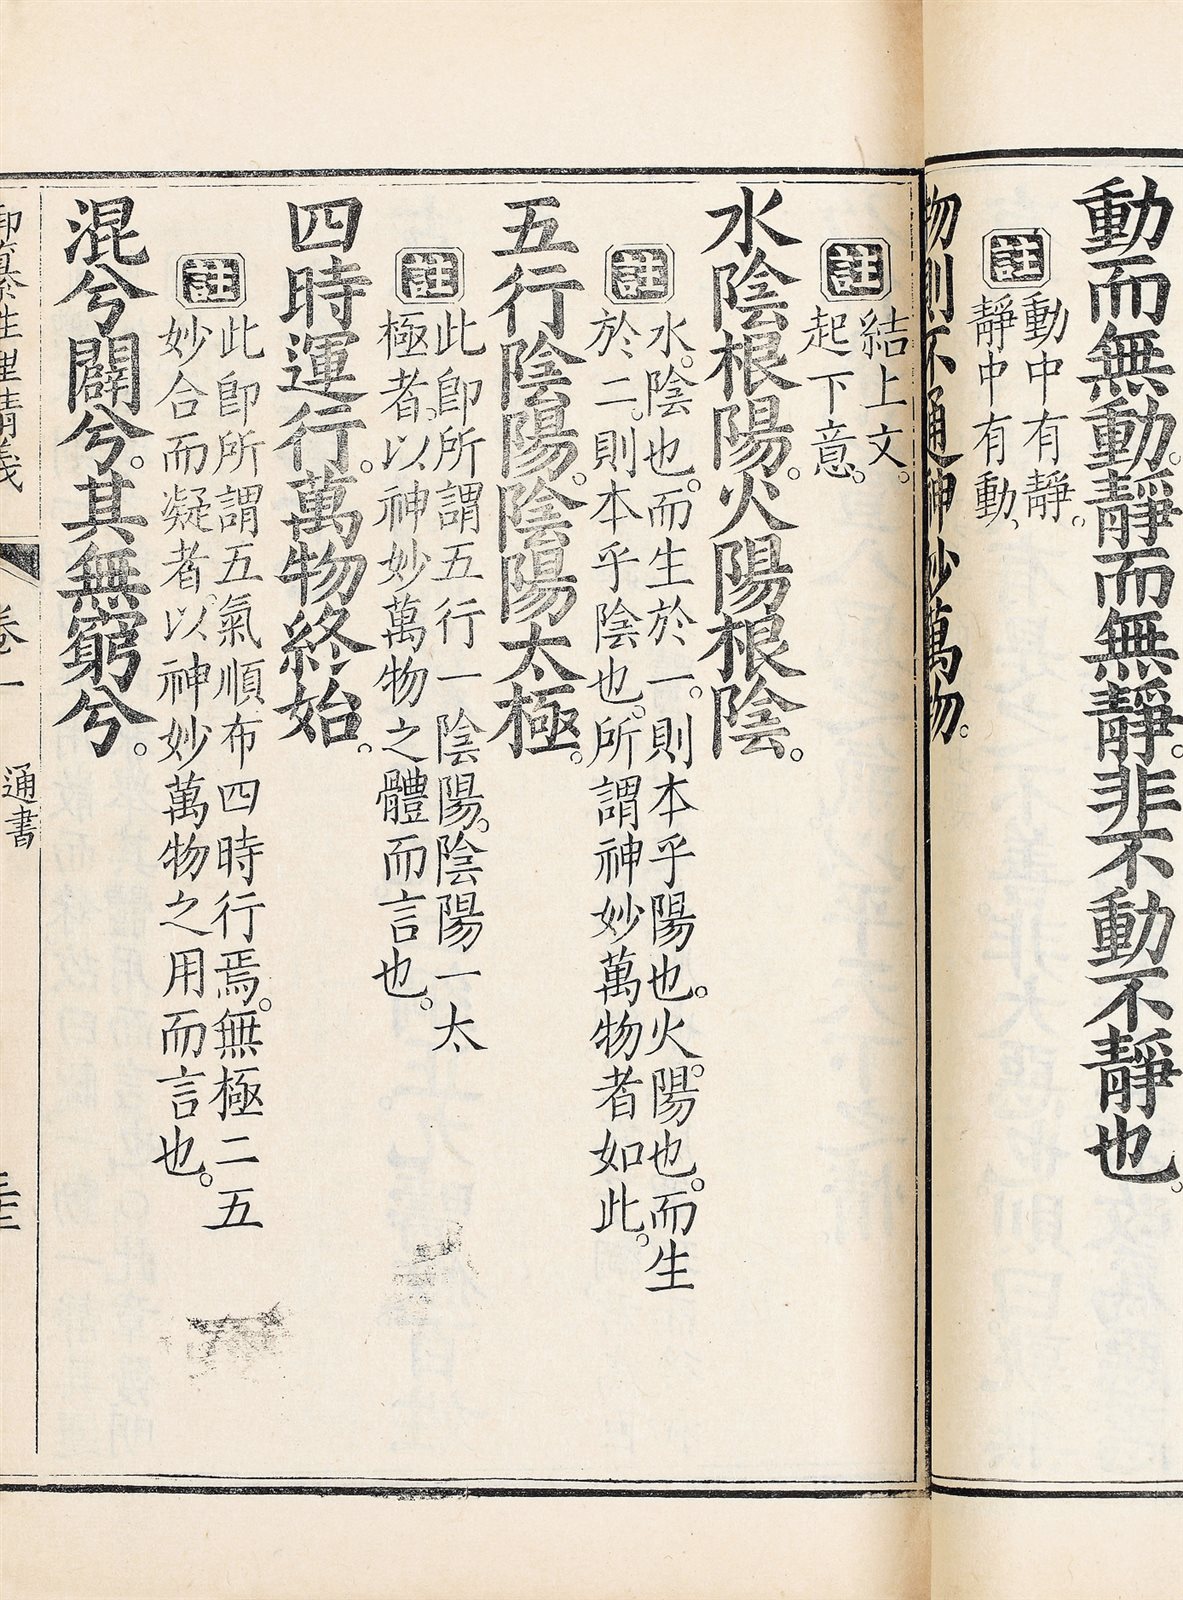 動而無動。靜而無靜。非不動不靜也。
註
動中有靜。
靜中有動、
物則不通。神妙萬物。
註
結上文。
起下意。
水陰根陽。火陽根陰。
註
水。陰也。而生於一。則本乎陽也。火。陽也。而生
於二。則本乎陰也。所謂神妙萬物者如此。
五行陰陽。陰陽太極。
註
此卽所謂五行一陰陽。陰陽一太
極者。以神妙萬物之體而言也。
四時運行。萬物終始。
註
此卽所謂五氣順布四時行焉。無極二五
妙合而凝者。以神妙萬物之用而言也。
混兮闢兮。其無窮兮。
御纂性理精義
卷一
通書